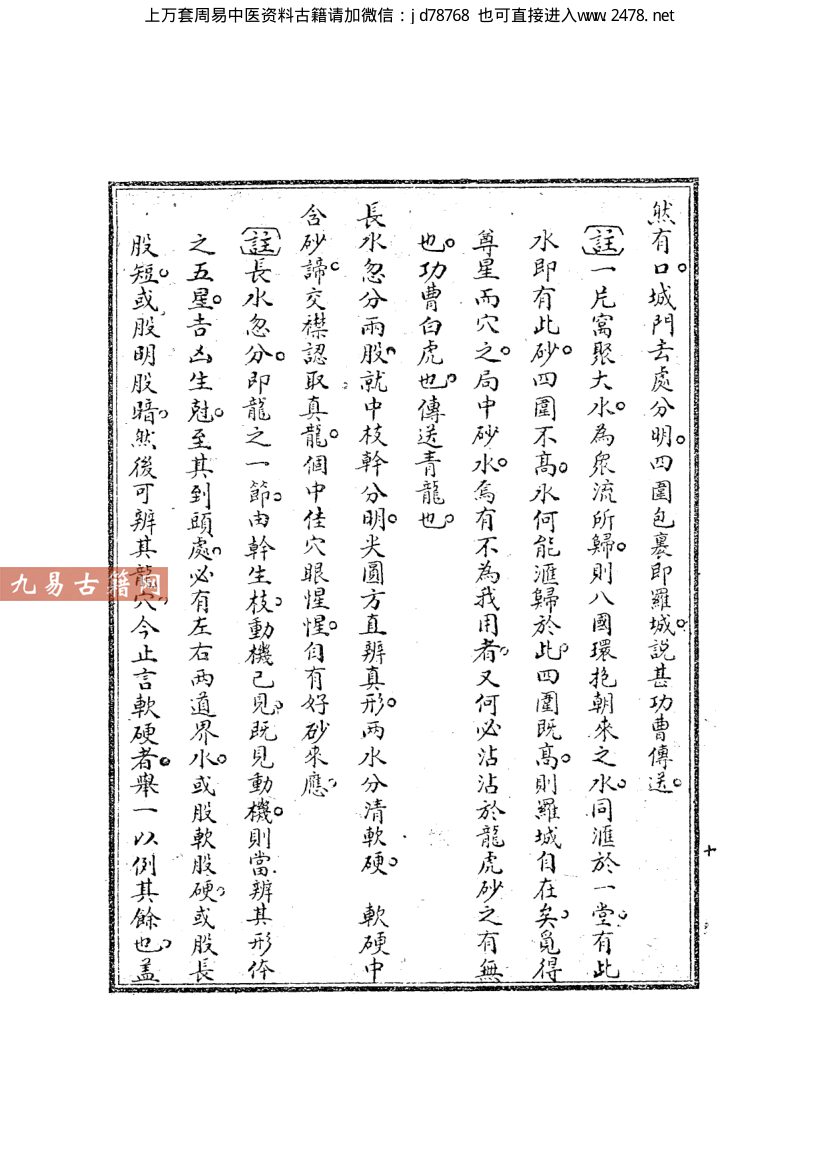 上万套周易中医资料古籍请加微信：jd78768 也可直接进入www.2478.net
然有口。城門去處分明。四圍包裹即羅城。說甚功曹傳送。
[註]一片窩聚大水。為衆流所歸。則八國環抱朝來之水。同滙於一堂。有此
水即有此砂。四圍不高。水何能滙歸於此。四圍既高。則羅城自在矣。覓得
尊星而穴之。局中砂水。焉有不為我用者。又何必沾沾於龍虎砂之有無
也。功曹白虎也。傳送青龍也。
長水忽分兩股。就中枝幹分明。尖圓方直辨真形。兩水分清軟硬。 軟硬中
含砂諦。交襟認取真龍。個中佳穴眼惺惺。自有好砂來應。
[註]長水忽分。即龍之一節。由幹生枝。動機已見。既見動機。則當辨其形体
之五星。吉凶生尅。至其到頭處。必有左右兩道界水。或股軟股硬。或股長
股短。或股明股暗。然後可辨其龍穴。今止言軟硬者。舉一以例其餘也。蓋
十
九易古籍网